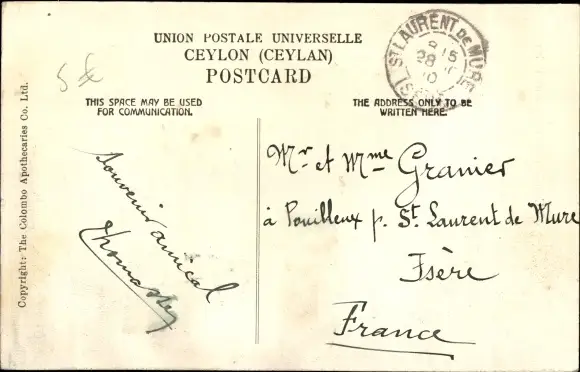 UNION POSTALE UNIVERSELLE
CEYLON (CEYLAN)
POSTCARD
THIS SPACE MAY BE USED
FOR COMMUNICATION.
THE ADDRESS ONLY TO BE
WRITTEN HERE.
ST LAURENT DE MURE
8 15
28
10
Copyright: The Colombo Apothecaries Co. Ltd.
Souvenir amical
Mr et Mme Granier
à Pouilleux p. St. Laurent de Mure
Isère
France